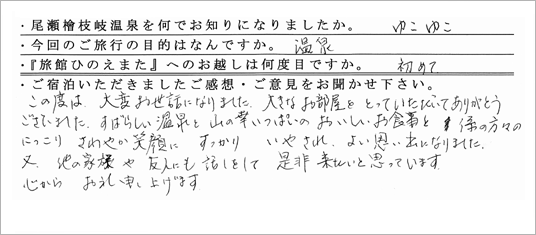 ・尾瀬檜枝岐温泉を何でお知りになりましたか。 ゆこゆこ
・今回のご旅行の目的はなんですか。 温泉
・『旅館ひのえまた』へのお越しは何度目ですか。 初めて
・ご宿泊いただきましたご感想・ご意見をお聞かせ下さい。
この度は、大変お世話になりました。大きなお部屋をとっていただいてありがとう
ございました。すばらしい温泉と山の幸いっぱいのおいしいお食事と係の方々の
にっこりさわやか笑顔にすっかりいやされ、よい思い出になりました。
又、他の家族や友人にも話しをして是非来たいと思っています。
心からお礼申し上げます